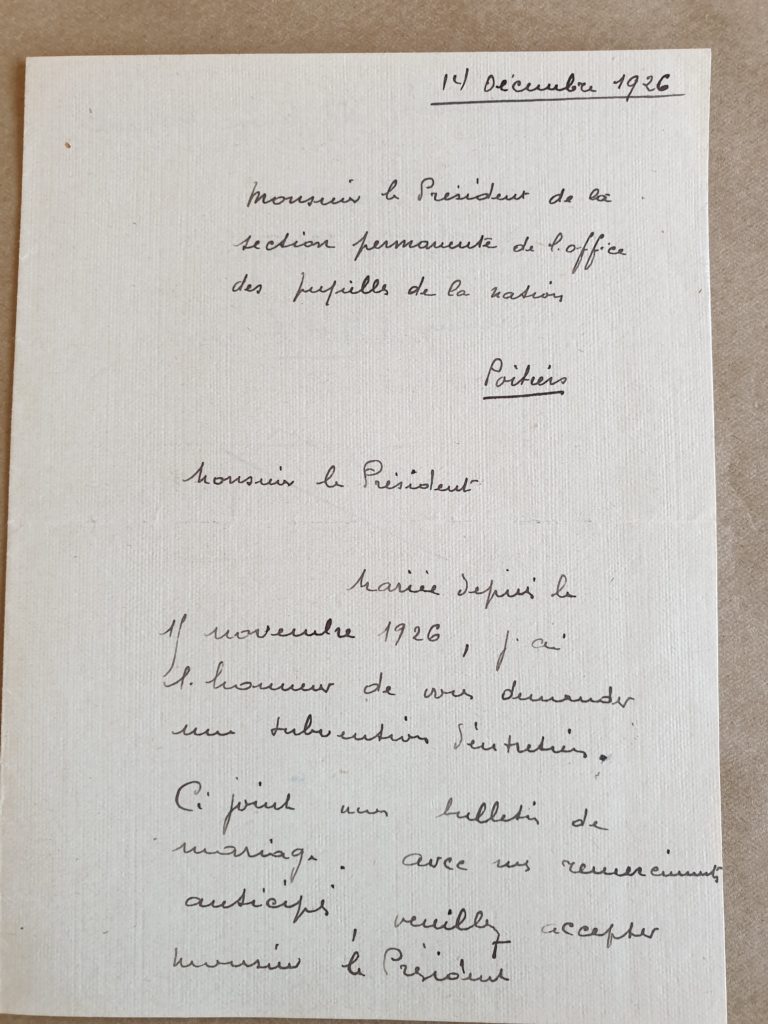 14 Décembre 1926
Monsieur le Président de la
section permanente de l'office
des pupilles de la nation
Poitiers
Monsieur le Président
Mariée depuis le
novembre 1926, j'ai
l'honneur de vous demander
une subvention d'entretien.
Ci joint un bulletin de
mariage. avec mes remerciments
anticipés, veuillez accepter
Monsieur le Président